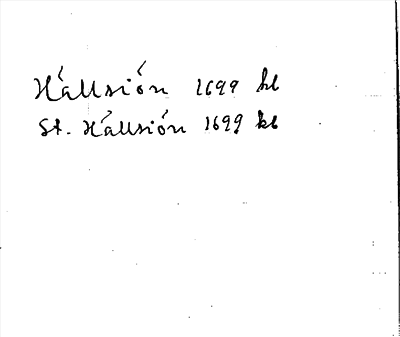 Hállsión 1699 kb
St. Hállsión 1699 kb